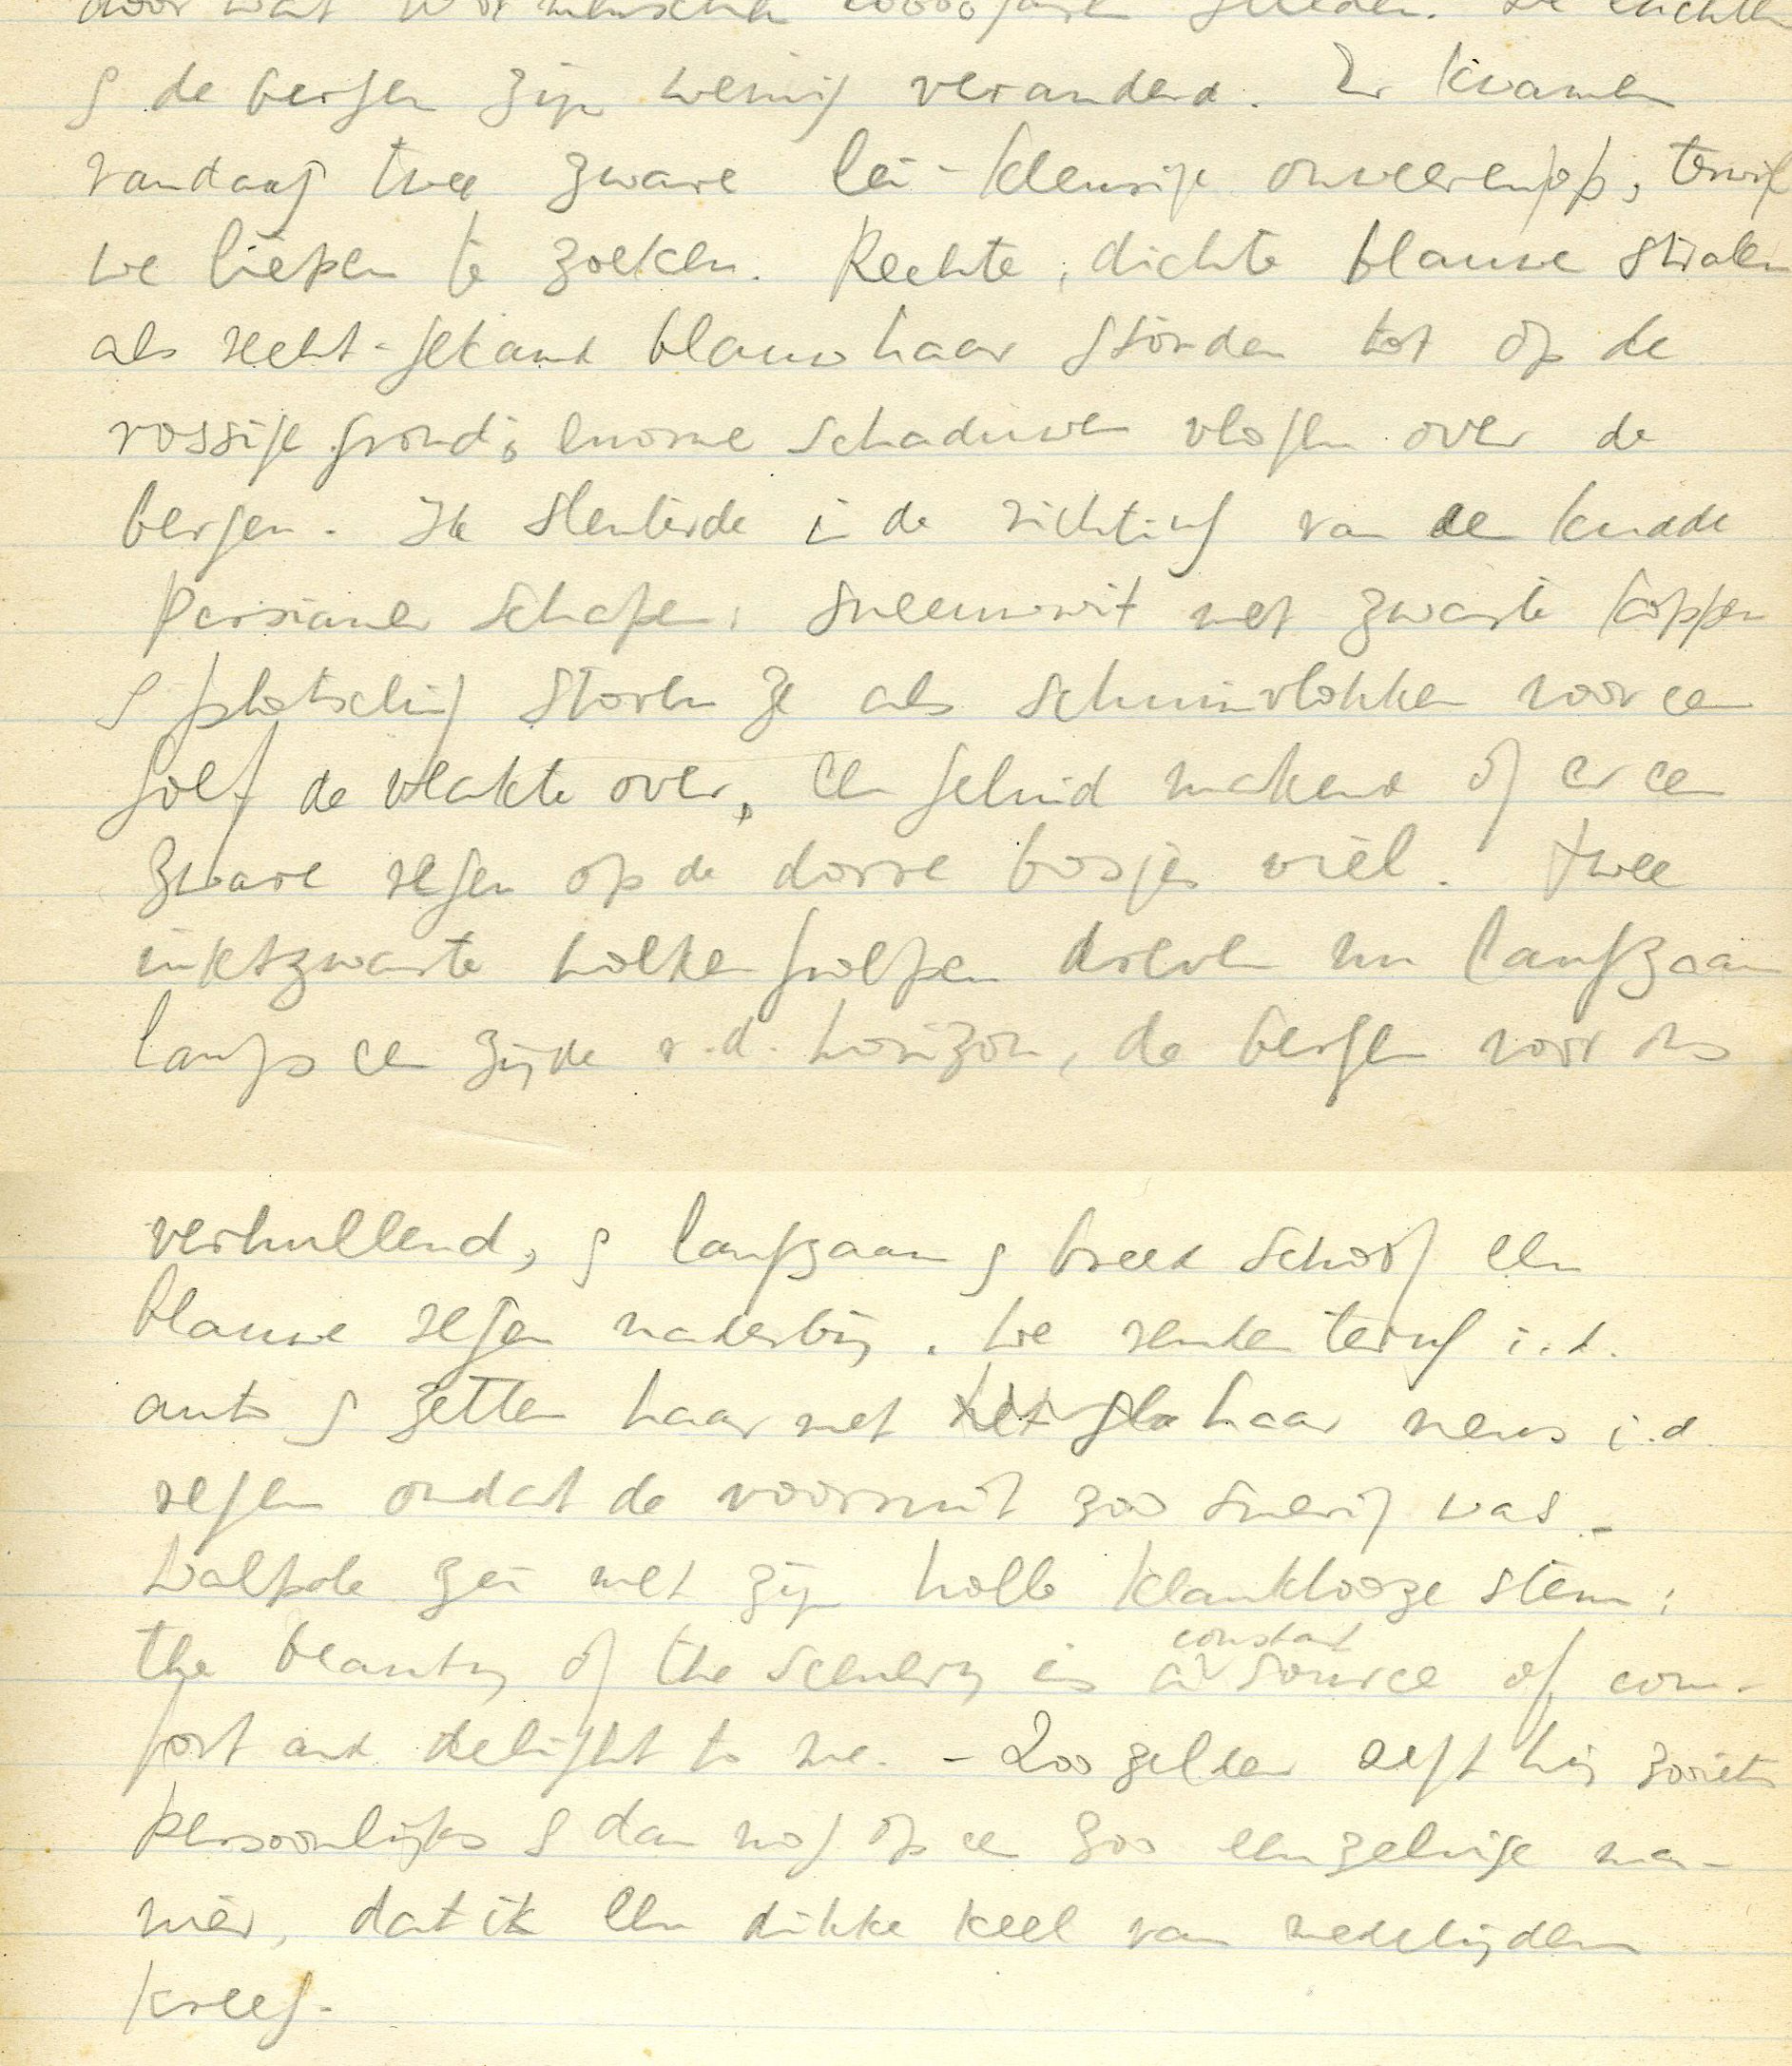 door wat voor menschen 10000 jaren geleden. De luchten
& de bergen zijn weinig veranderd. Er kwamen
vandaag twee zware lei-kleurige onweeren op, terwijl
we liepen te zoeken. Rechte, dichte blauwe stralen
als recht-gekamd blauw haar stonden tot op de
rossige grond; enorme schaduwen vlogen over de
bergen. Ik slenterde in de richting van de kudde
Persianer schapen; sneeuwwit met zwarte koppen
& plotseling stoven ze als schuimvlokken voor een
golf de vlakte over, een geluid makend of er een
zware regen op de dorre bosjes viel. Twee
inktzwarte wolken golven dreven nu langzaam
langs een zijde v.d. horizon, de bergen voor ons
verhullend, & langzaam & breed schoof een
blauwe regen naderbij. We renden terug i.d.
auto & zetten haar met haar neus i.d.
regen omdat de voorruit zoo smerig was.
Walpole zei met zijn holle klanklooze stem:
the beauty of the scenery is a constant source of com-
fort and delight to me. - Zoo zelden zegt hij zooiets
persoonlijks & dan nog op een zoo eenzelvige ma-
nier, dat ik een dikke keel van medelijden
kreeg.